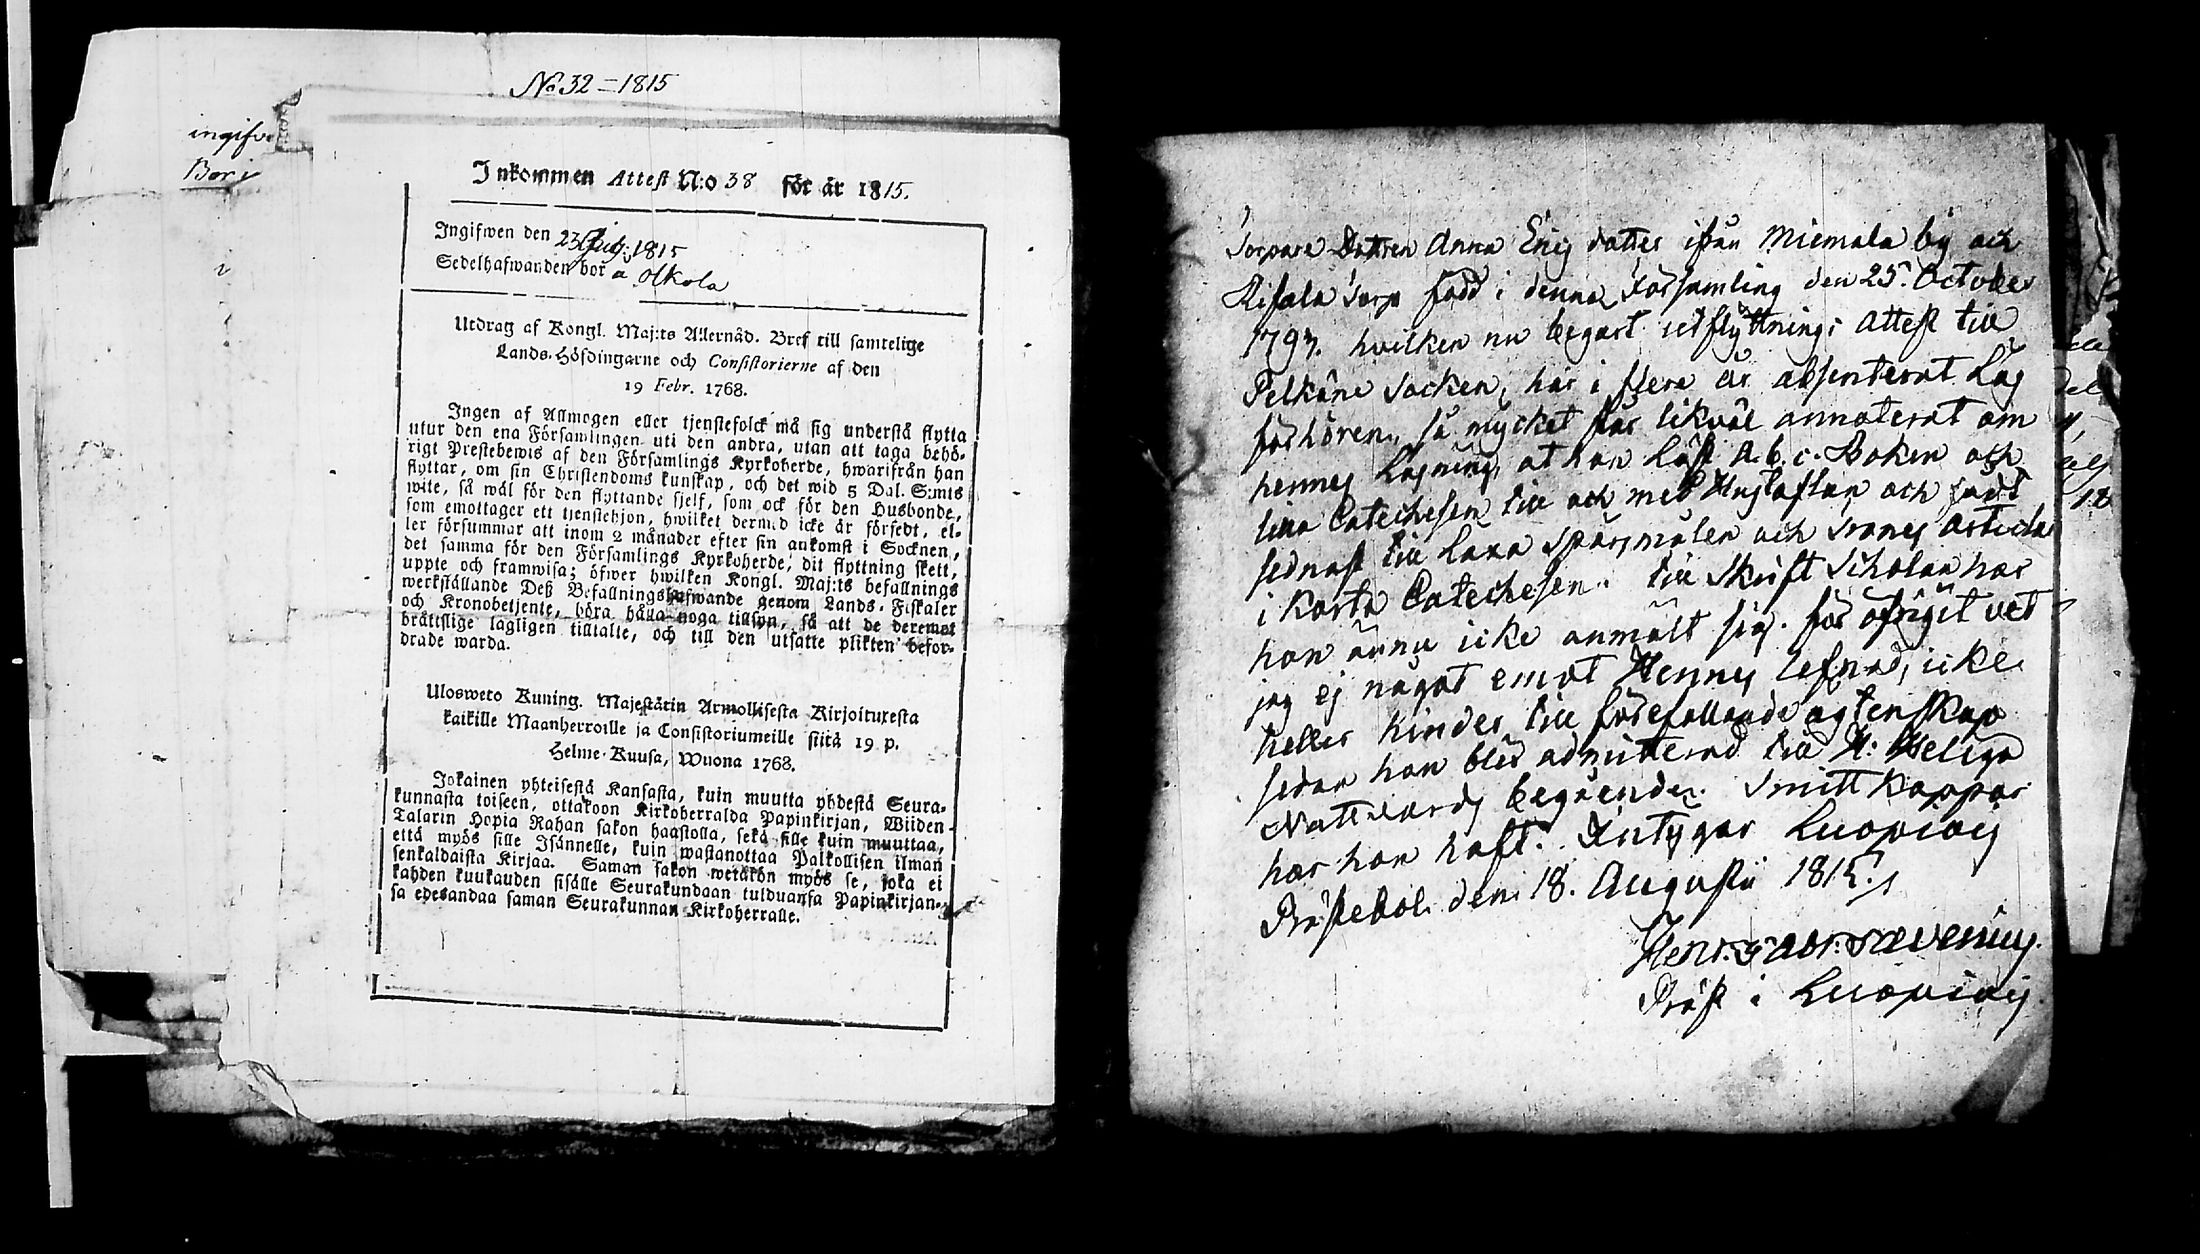 No 32 = 1815
ingifv
Bor i
Inkommen Attest N:o 38 för år 1815.
Ingifwen den 23 Aug. 1815
Sedelhafwanden bor å Olkola
Utdrag af Kongl. Maj:ts Allernåd. Bref till samtelige
Lands-Höfdingarne och Consistorierne af den
19 Febr. 1768.
Ingen af Allmogen eller tjenstefolck må sig understå flytta
utur den ena Församlingen uti den andra, utan att taga behö-
rigt Prestebewis af den Församlings Kyrkoherde, hwarifrån han
flyttar, om sin Christendoms kunskap, och det wid 5 Dal. S:mts
wite, så wäl för den flyttande sjelf, som ock för den Husbonde,
som emottager ett tjenstehjon, hwilket dermed icke är försedt, el-
ler försummar att inom 2 månader efter sin ankomst i Socknen,
det samma för den Församlings Kyrkoherde, dit flyttning skett,
uppte och framwisa; öfwer hwilken Kongl. Maj:ts befallnings
werkställande Deß Befallningshafwande genom Lands-Fiskaler
och Kronobetjente, böra hålla noga tillsyn, så att de deremot
bråttslige lagligen tilltalte, och till den utsatte plikten befor-
drade warda.
Ulosweto Kuning. Majestätin Armollisesta Kirjoituxesta
kaikille Maanherroille ja Consistoriumeille siitä 19 p.
Helme-Kuusa, Wuona 1768.
Jokainen yhteisestä Kansasta, kuin muutta yhdestä Seura-
kunnasta toiseen, ottakoon Kirkoherralda Papinkirjan, Wiiden
Talarin Hopia Rahan sakon haastolla, sekä sille kuin muuttaa,
että myös sille Isännelle, kuin wastanottaa Palkollisen ilman
senkaldaista Kirjaa. Saman sakon wetäkön myös se, joka ei
kahden kuukauden sisälle Seurakundaan tulduansa Papinkirjan-
sa edesandaa saman Seurakunnan Kirkoherralle.
Torpare Dottren Anna Erics dotter ifrån Miemala by och
Rifala Torp född i denna Församling den 25. October
1793. hvilken nu begärt utflyttnings Attest till
Pelkäne Socken, har i flere år absenterat Läs
förhören, så mycket fås likväl annoterat om
hennes Läsning, at hon Läst A.b.c. Boken och
lilla Catechesen till och med Hustaflan och samt
sednast till Laxa Spärsmålen och Svanes Articlar
i korta Catechesen. till Skrift Scholan har
hon ännu icke anmält sig. för öfrigit vet
jag ej något emot Hennes lefnad, icke
heller hinder till förefallande ägtenskap
sedan hon blir admitterad till H: Heliga
Nattvards begående. Smittkoppor
har hon haft. Intygar Luopiois
Prästebol den 18. Augusti 1815.
Henr. Gabr. Sævenius.
Präst i Luopiois